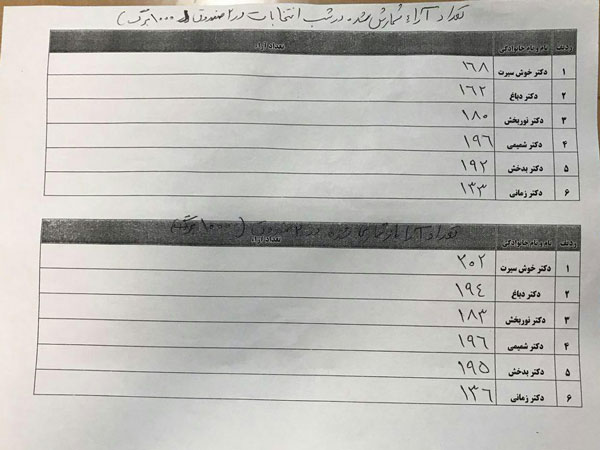 تعداد آراء شمارش شده در شب انتخابات در ۲ صندوق (۱۰۰۰ برگ)
ردیف نام و نام خانوادگی تعداد آراء
۱ دکتر خوش سیرت ۱۶۸
۲ دکتر دباغ ۱۶۲
۳ دکتر نوربخش ۱۸۰
۴ دکتر شمیمی ۱۹۶
۵ دکتر بدخش ۱۹۲
۶ دکتر زمانی ۱۳۳
تعداد آراء بازشماری شده در ۲ صندوق (۱۰۰۰ برگ)
ردیف نام و نام خانوادگی تعداد آراء
۱ دکتر خوش سیرت ۲۰۲
۲ دکتر دباغ ۱۹٤
۳ دکتر نوربخش ۱۸۳
۴ دکتر شمیمی ۱۹۶
۵ دکتر بدخش ۱۹۵
۶ دکتر زمانی ۱۳۶